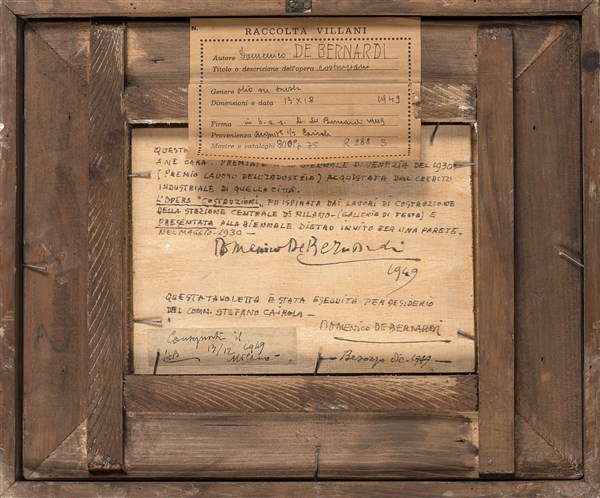 N. RACCOLTA VILLANI
Autore Domenico DE BERNARDI
Titolo o descrizione dell'opera costruzioni
Genere olio su tavola
Dimensioni e data 13 x 18 1949
Firma in b. a s. D. De Bernardi 1949
Provenienza Cairola
Mostre e cataloghi
QUESTO
A ME CARA PREMIATA BIENNALE DI VENEZIA DEL 1930
(PREMIO LAVORO DELL'INDUSTRIA) ACQUISTATA DAL CREDITO
INDUSTRIALE DI QUELLA CITTÀ.
L'OPERA "COSTRUZIONI" FU ISPIRATA DAI LAVORI DI COSTRUZIONE
DELLA STAZIONE CENTRALE DI MILANO - (GALLERIA DI TESTA) E
PRESENTATA ALLA BIENNALE DIETRO INVITO PER UNA PARETE.
NEL MAGGIO - 1930 -
Domenico De Bernardi
1949
QUESTA TAVOLETTA È STATA ESEGUITA PER DESIDERIO
DEL COMM. STEFANO CAIROLA -
DOMENICO DE BERNARDI
Besozzo dic. 1949
13/12 1949
Milano -